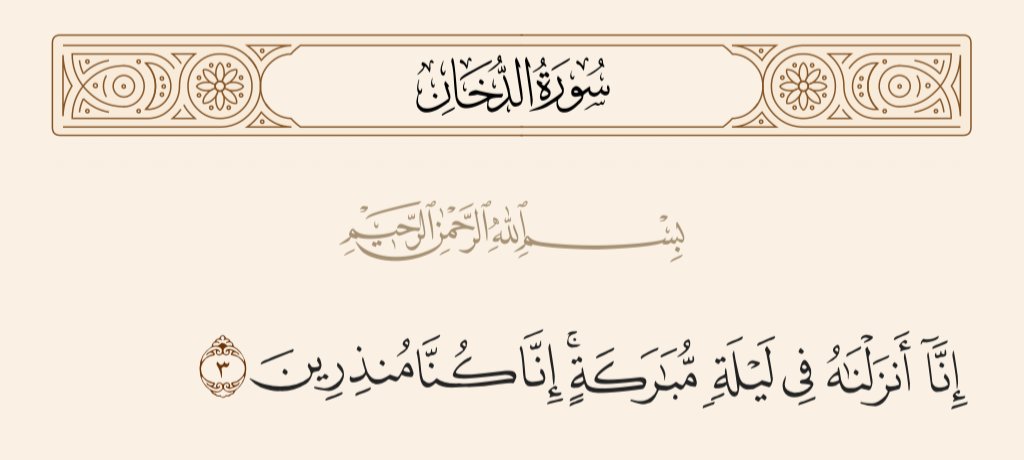 سُورَةُ الدُّخَانِ
بِسْمِ ٱللَّهِ ٱلرَّحْمَٰنِ ٱلرَّحِيمِ
إِنَّآ أَنزَلْنَٰهُ فِى لَيْلَةٍ مُّبَٰرَكَةٍ ۚ إِنَّا كُنَّا مُنذِرِينَ ٣